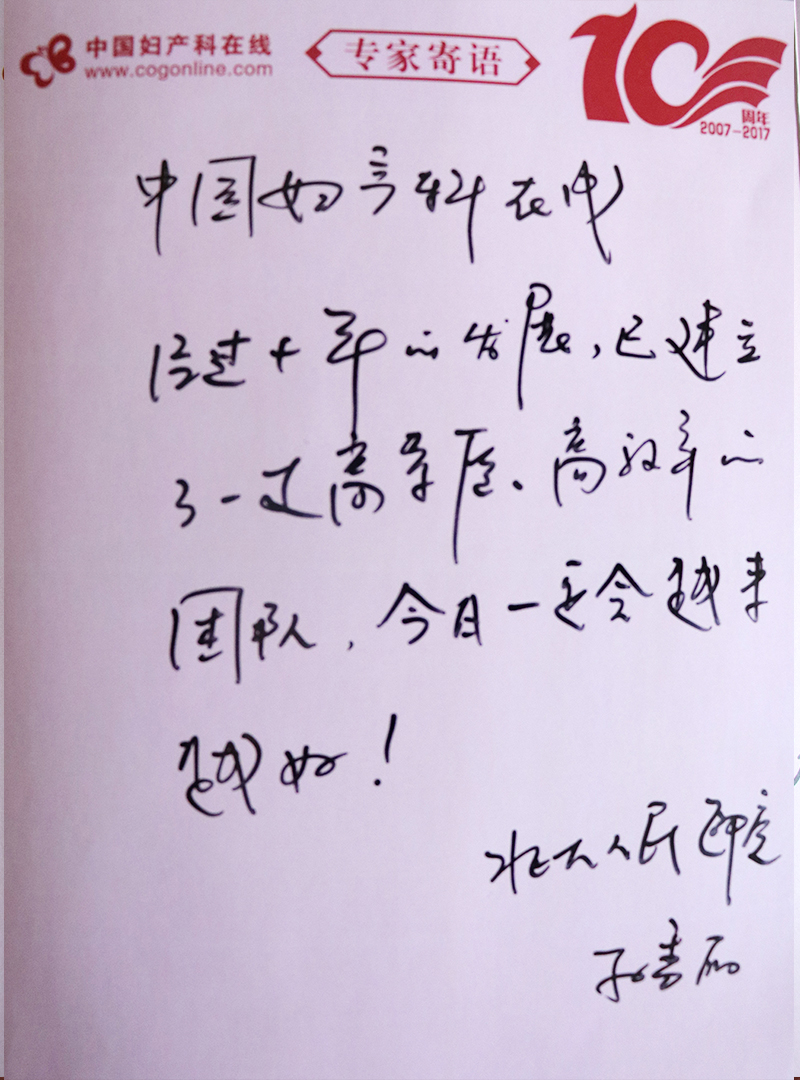 中国妇产科在线
www.cogonline.com
专家寄语
10周年
2007-2017
中国妇产科在线
经过十年的发展,已建立
了一支高素质、高效率的
团队,今后一定会越来
越好!
北大人民医院
孙秀丽